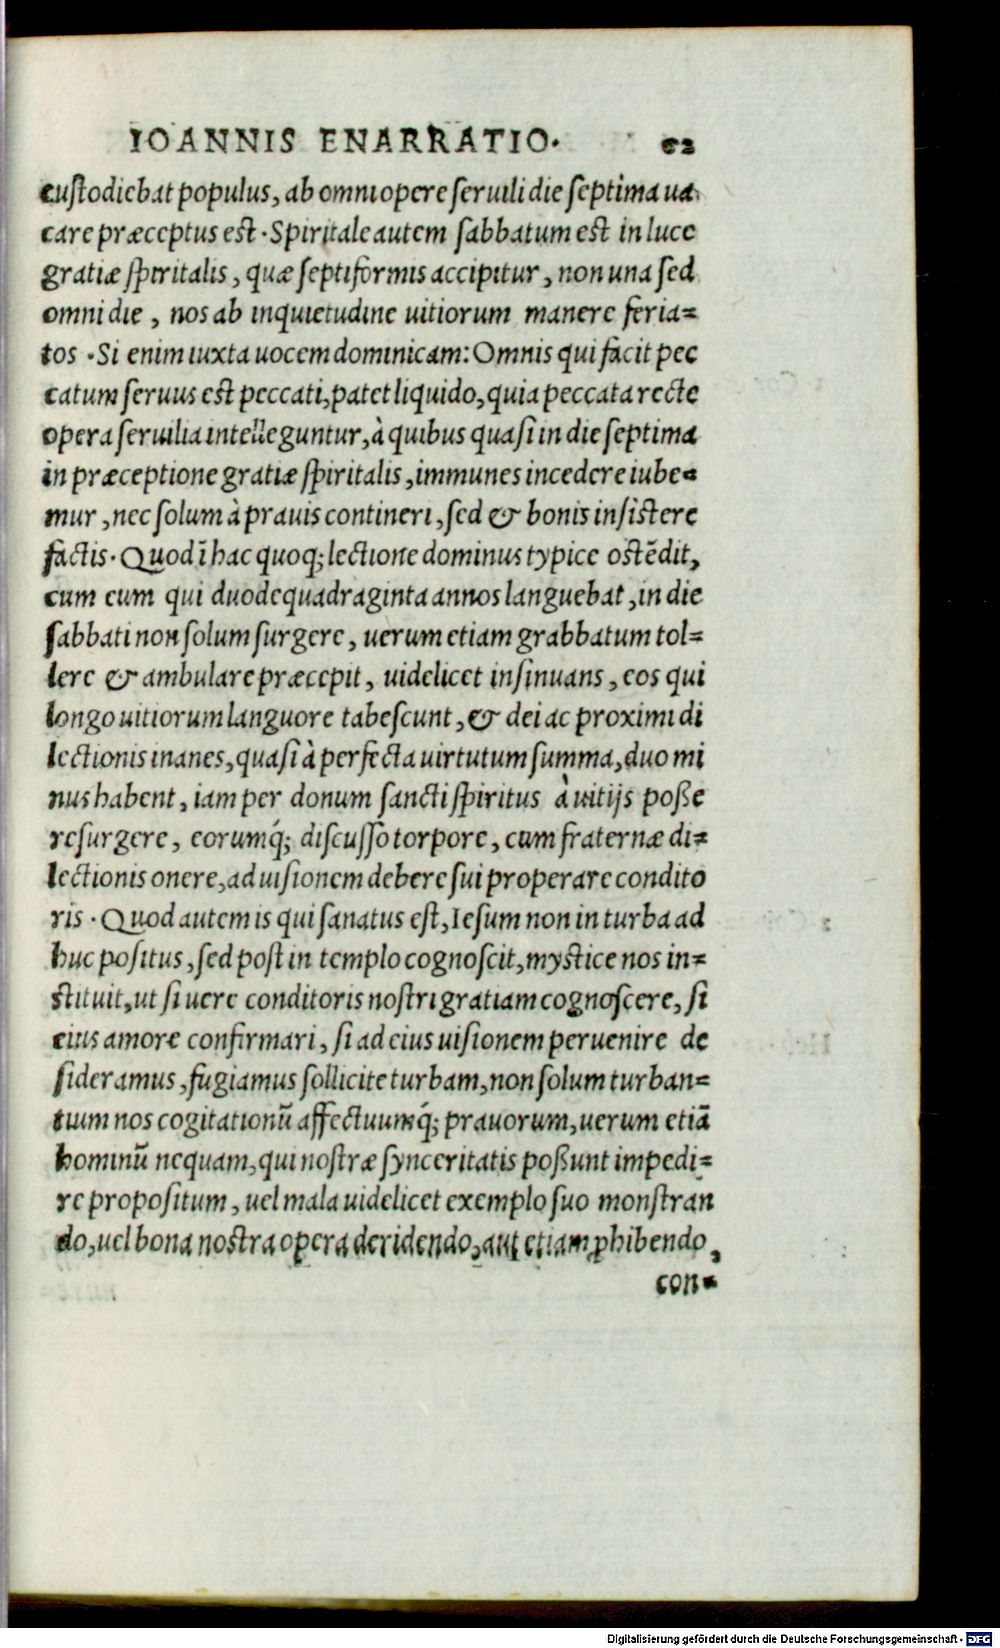 IOANNIS ENARRATIO. 62
custodiebat populus, ab omni opere seruili die septima ua
care præceptus est. Spiritale autem sabbatum est in luce
gratiæ spiritalis, quæ septiformis accipitur, non una sed
omni die, nos ab inquietudine uitiorum manere feria=
tos. Si enim iuxta uocem dominicam: Omnis qui facit pec
catum seruus est peccati, patet liquido, quia peccata recte
opera seruilia intelleguntur, à quibus quasi in die septima
in præceptione gratiæ spiritalis, immunes incedere iube=
mur, nec solum à prauis contineri, sed & bonis insistere
factis. Quod ī hac quoq; lectione dominus typice ostēdit,
cum eum qui duodequadraginta annos languebat, in die
sabbati non solum surgere, uerum etiam grabbatum tol=
lere & ambulare præcepit, uidelicet insinuans, eos qui
longo uitiorum languore tabescunt, & dei ac proximi di
lectionis inanes, quasi à perfecta uirtutum summa, duo mi
nus habent, iam per donum sancti spiritus à uitijs posse
resurgere, eorumq́; discusso torpore, cum fraternæ di=
lectionis onere, ad uisionem debere sui properare condito
ris. Quod autem is qui sanatus est, Iesum non in turba ad
huc positus, sed post in templo cognoscit, mystice nos in=
stituit, ut si uere conditoris nostri gratiam cognoscere, si
eius amore confirmari, si ad eius uisionem peruenire de
sideramus, fugiamus sollicite turbam, non solum turban=
tium nos cogitationū affectuumq́; prauorum, uerum etiā
hominū nequam, qui nostræ synceritatis possunt impedi=
re propositum, uel mala uidelicet exemplo suo monstran
do, uel bona nostra opera deridendo, aut etiam ꝓhibendo,
con=
Digitalisierung gefördert durch die Deutsche Forschungsgemeinschaft - DFG